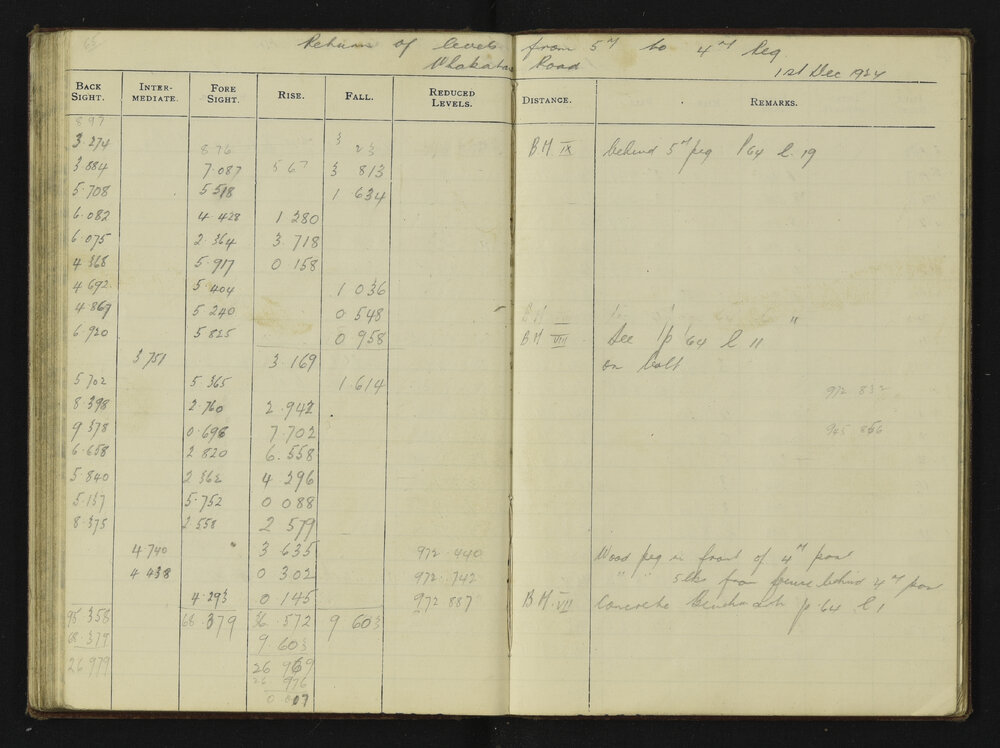 65
Return of levels from 5 M to 4 M Peg
Whakatane Road
1st Dec 1924
BACK SIGHT. INTER-MEDIATE. FORE SIGHT. RISE. FALL. REDUCED LEVELS. DISTANCE. REMARKS.
897
3 274 876 3 23 BM IX behind 5 M peg P 64 l. 19
3 884 7.087 567 3 813
5.708 5 518 1 634
6.082 4.428 1 280
6.075 2.364 3.718
4 368 5.917 0 158
4 692 5 404 1 036
4 867 5 240 0 548
6.920 5 825 0 958 BM VIII See 1/p 64 l 11
3 751 3.169 on bolt
5.702 5.365 1.614
8.398 2.760 2.942
9.378 0.696 7.702 945 856
6.658 2 820 6.558
5.840 2 362 4 296
5.137 5.752 0 088
8.375 2 558 2 579
4 740 3 635 972.440 Wood peg in front of 4 M post
4 438 0 302 972.742 " " 5 lks from fence behind 4 M post
4.293 0.145 972 887 BM VII Concrete Benchmark p 64 l 1
95 358 68 379 36.572 9 603
68.379 9.603
26 979 26 969
26 976
0 007